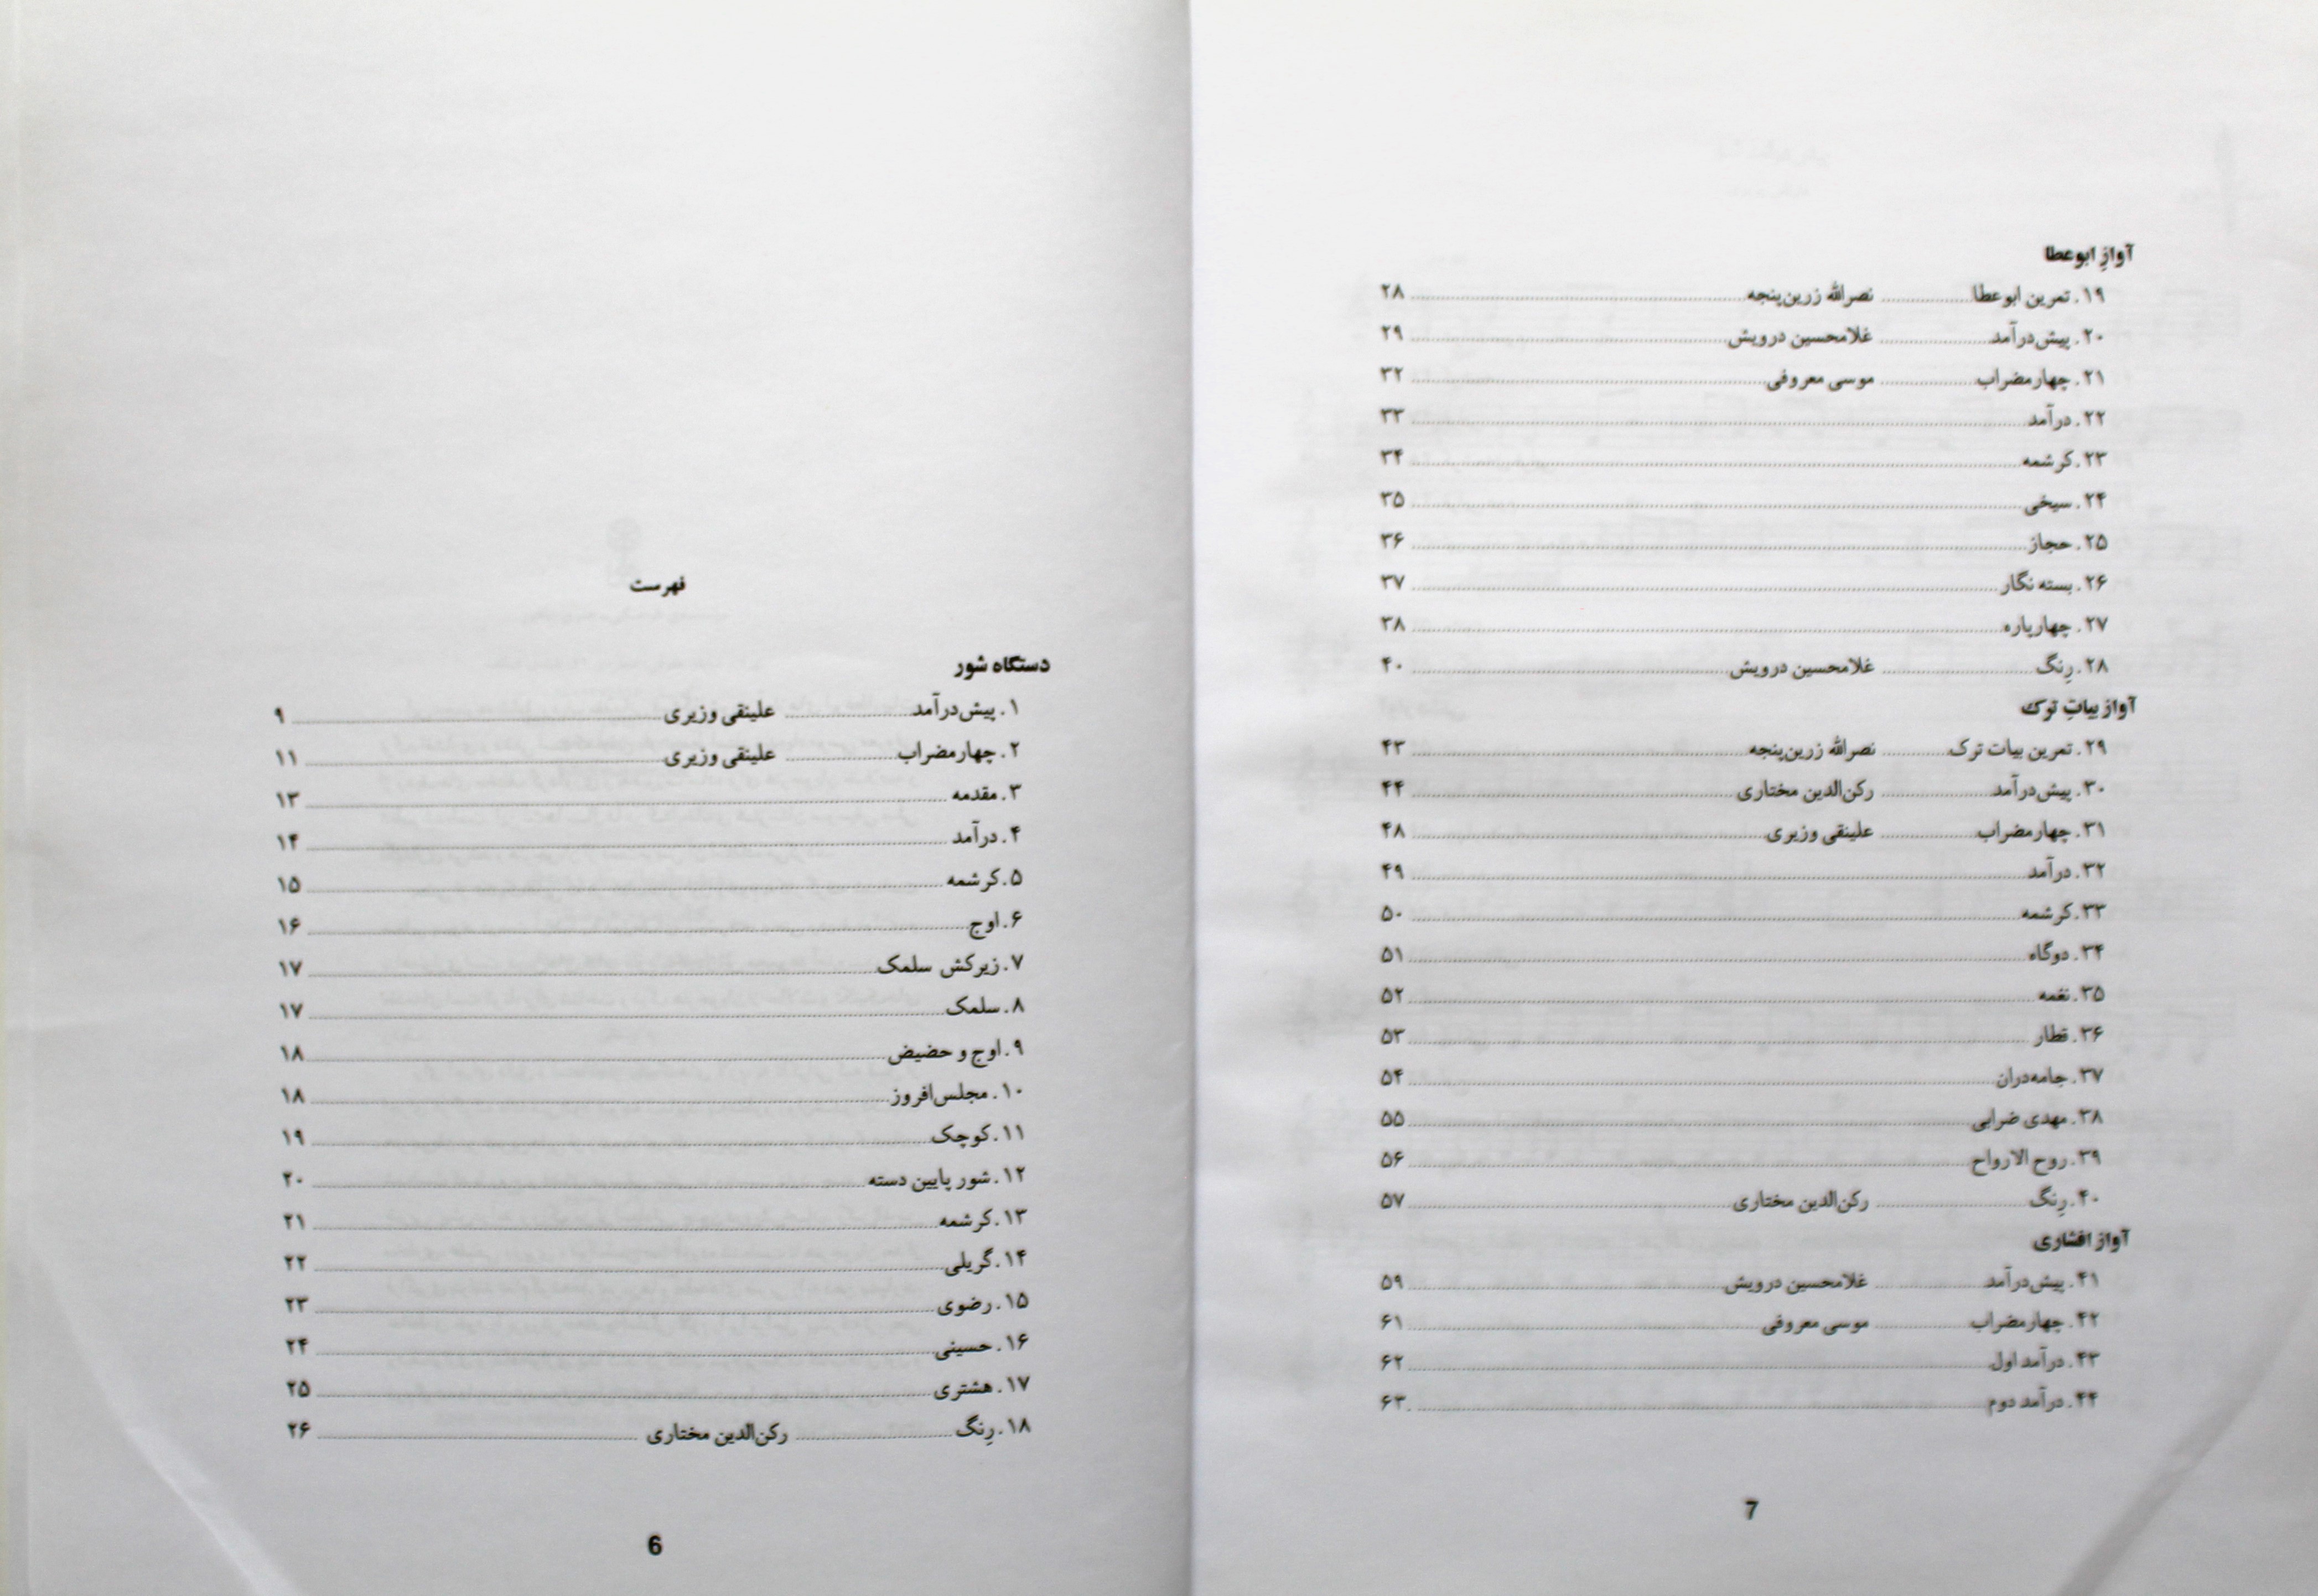 فهرست
دستگاه شور
۱. پیش‌درآمد ........ علینقی وزیری ........ ۹
۲. چهارمضراب ........ علینقی وزیری ........ ۱۱
۳. مقدمه ........ ۱۳
۴. درآمد ........ ۱۴
۵. کرشمه ........ ۱۵
۶. اوج ........ ۱۶
۷. زیرکش سلمک ........ ۱۷
۸. سلمک ........ ۱۷
۹. اوج و حضیض ........ ۱۸
۱۰. مجلس‌افروز ........ ۱۸
۱۱. کوچک ........ ۱۹
۱۲. شور پایین دسته ........ ۲۰
۱۳. کرشمه ........ ۲۱
۱۴. گریلی ........ ۲۲
۱۵. رضوی ........ ۲۳
۱۶. حسینی ........ ۲۴
۱۷. هشتری ........ ۲۵
۱۸. رِنگ ........ رکن‌الدین مختاری ........ ۲۶
6
آوازِ ابوعطا
۱۹. تمرین ابوعطا ........ نصرالله زرین‌پنجه ........ ۲۸
۲۰. پیش‌درآمد ........ غلامحسین درویش ........ ۲۹
۲۱. چهارمضراب ........ موسی معروفی ........ ۳۲
۲۲. درآمد ........ ۳۳
۲۳. کرشمه ........ ۳۴
۲۴. سیخی ........ ۳۵
۲۵. حجاز ........ ۳۶
۲۶. بسته نگار ........ ۳۷
۲۷. چهارپاره ........ ۳۸
۲۸. رِنگ ........ غلامحسین درویش ........ ۴۰
آواز بیاتِ ترک
۲۹. تمرین بیات ترک ........ نصرالله زرین‌پنجه ........ ۴۳
۳۰. پیش‌درآمد ........ رکن‌الدین مختاری ........ ۴۴
۳۱. چهارمضراب ........ علینقی وزیری ........ ۴۸
۳۲. درآمد ........ ۴۹
۳۳. کرشمه ........ ۵۰
۳۴. دوگاه ........ ۵۱
۳۵. نغمه ........ ۵۲
۳۶. قطار ........ ۵۳
۳۷. جامه‌دران ........ ۵۴
۳۸. مهدی ضرابی ........ ۵۵
۳۹. روح الارواح ........ ۵۶
۴۰. رِنگ ........ رکن‌الدین مختاری ........ ۵۷
آواز افشاری
۴۱. پیش‌درآمد ........ غلامحسین درویش ........ ۵۹
۴۲. چهارمضراب ........ موسی معروفی ........ ۶۱
۴۳. درآمد اول ........ ۶۲
۴۴. درآمد دوم ........ ۶۳
7